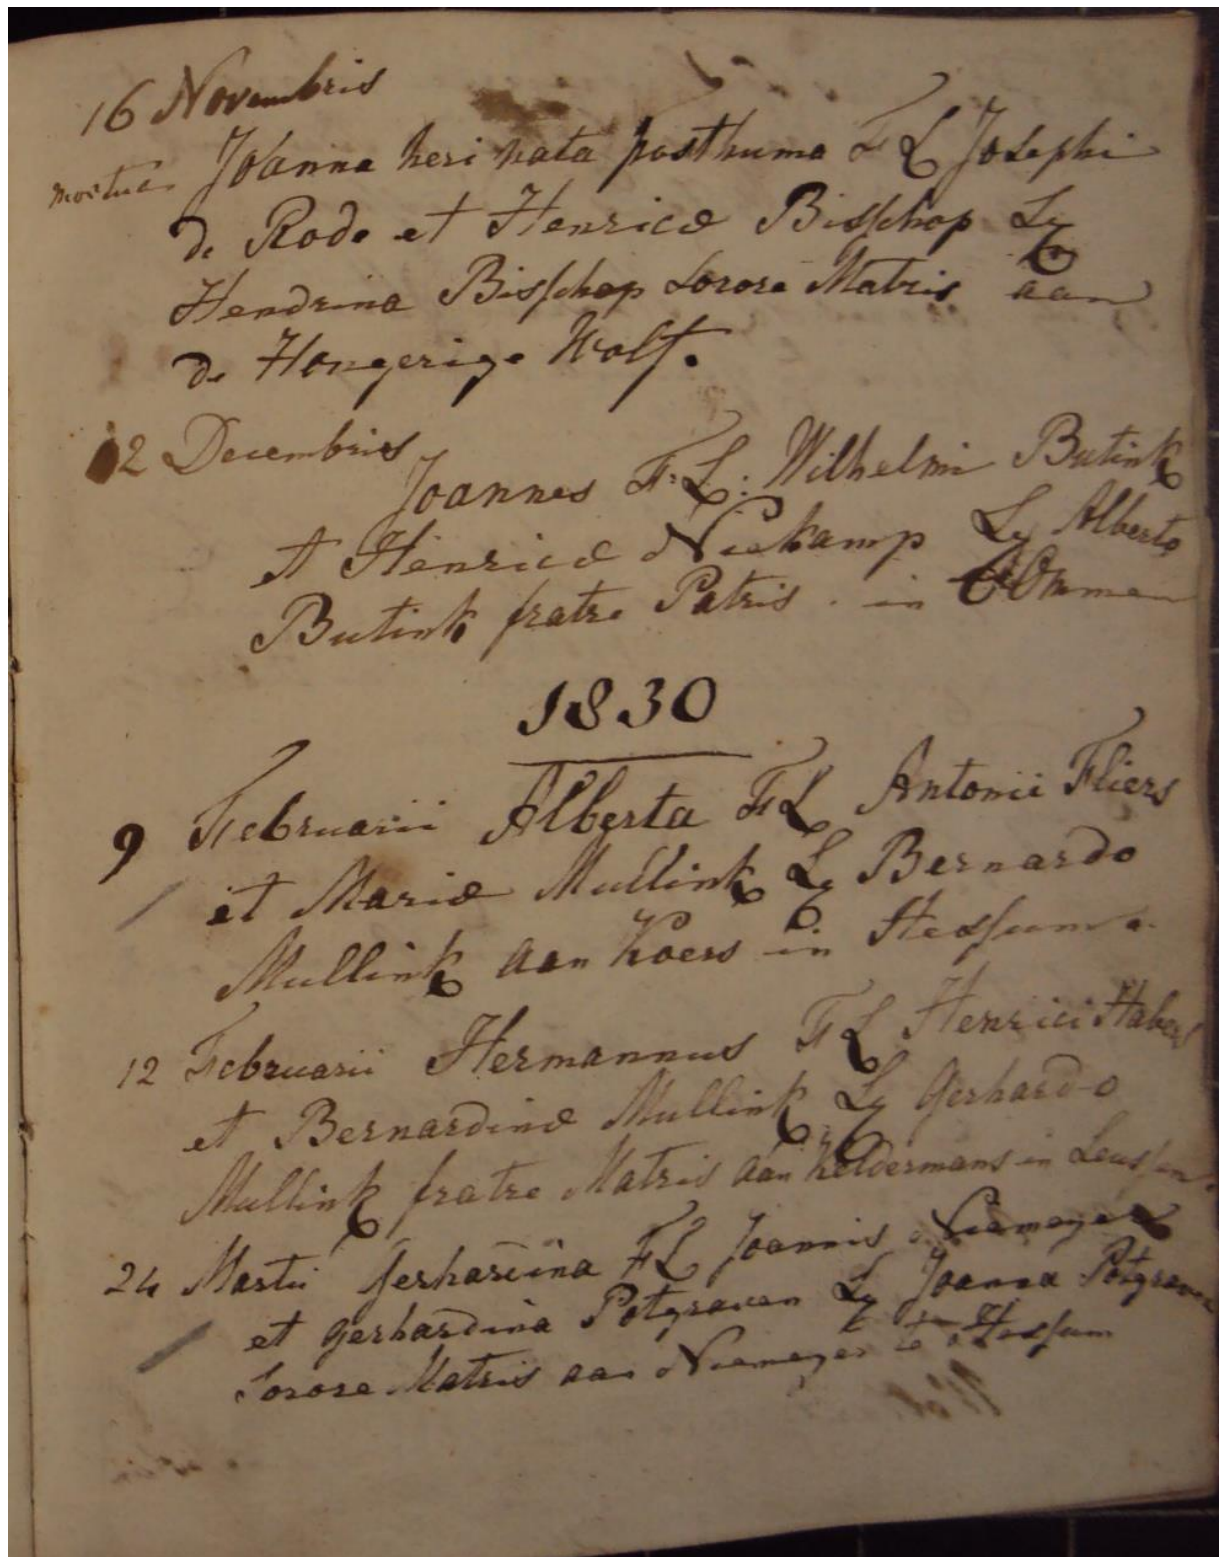 16 Novembris
mortua Joanna heri nata posthuma F L Josephi
de Rode et Henricæ Bisschop Lg
Hendrina Bisschop Sorore Matris aan
de Hongerige Wolf.
2 Decembris
Joannes F. L: Wilhelmi Butink
et Henricæ Niekamp Lg Alberto
Butink fratre Patris. in Ommen
1830
9 Februarii Alberta F L Antonii Fliers
et Mariæ Mullink Lg Bernardo
Mullink aan Koers in Hessum.
12 Februarii Hermannus F L Henrici
et Bernardinæ Mullink Lg Gerhardo
Mullink fratre Matris aan Keldermans in Leussen.
24 Martii Gerhardina F L Joannis Niemeyer
et Gerhardina Potgraven Lg Joanna Potgraven
Sorore Matris aan Niemeyer te Hessum